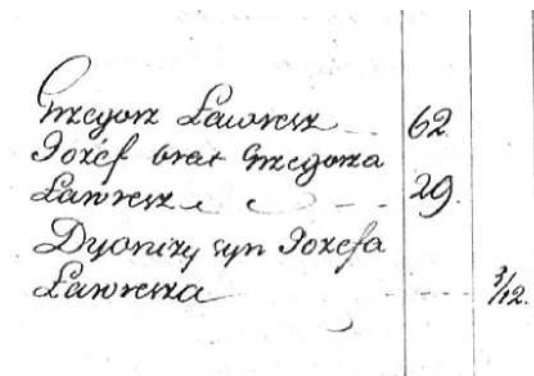 Grzegorz Ławresz 62
Jozéf brat Grzegorza
Ławresz 29.
Dyonizy syn Jozefa
Ławresza 3/12.